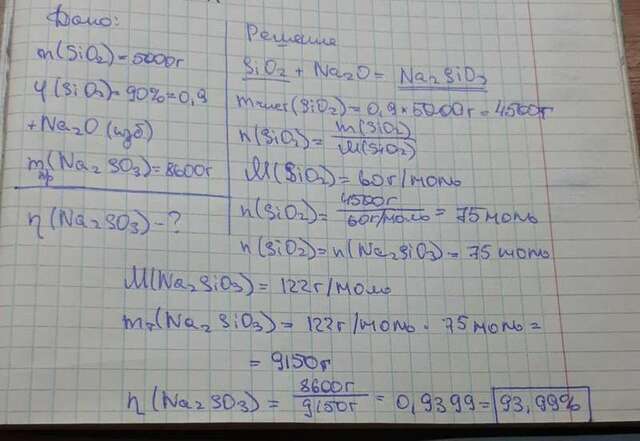 Дано:
m(SiO₂)=5000г
φ(SiO₂)=90%=0,9
+Na₂O (изб)
mпр(Na₂SO₃)=8600г
η(Na₂SO₃)-?
Решение
SiO₂ + Na₂O = Na₂SiO₃
mчист(SiO₂)=0,9×5000г=4500г
n(SiO₂)= m(SiO₂)/M(SiO₂)
M(SiO₂)=60г/моль
n(SiO₂)= 4500г/60г/моль = 75моль
n(SiO₂)=n(Na₂SiO₃)=75 моль
M(Na₂SiO₃)=122г/моль
mт(Na₂SiO₃)=122г/моль · 75моль=
=9150г
η(Na₂SO₃)= 8600г/9150г = 0,9399=93,99%